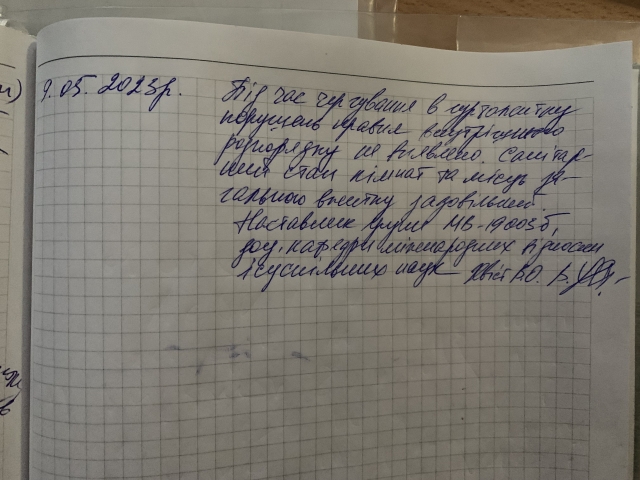 9.05.2023р. Під час чергування в гуртожитку
порушень правил внутрішнього
розпорядку не виявлено. Санітар-
ний стан кімнат та місць за-
гального вжитку задовільний.
Наставник групи МВ-19003б,
доц. кафедри міжнародних відносин
і суспільних наук Хвіст В.О.